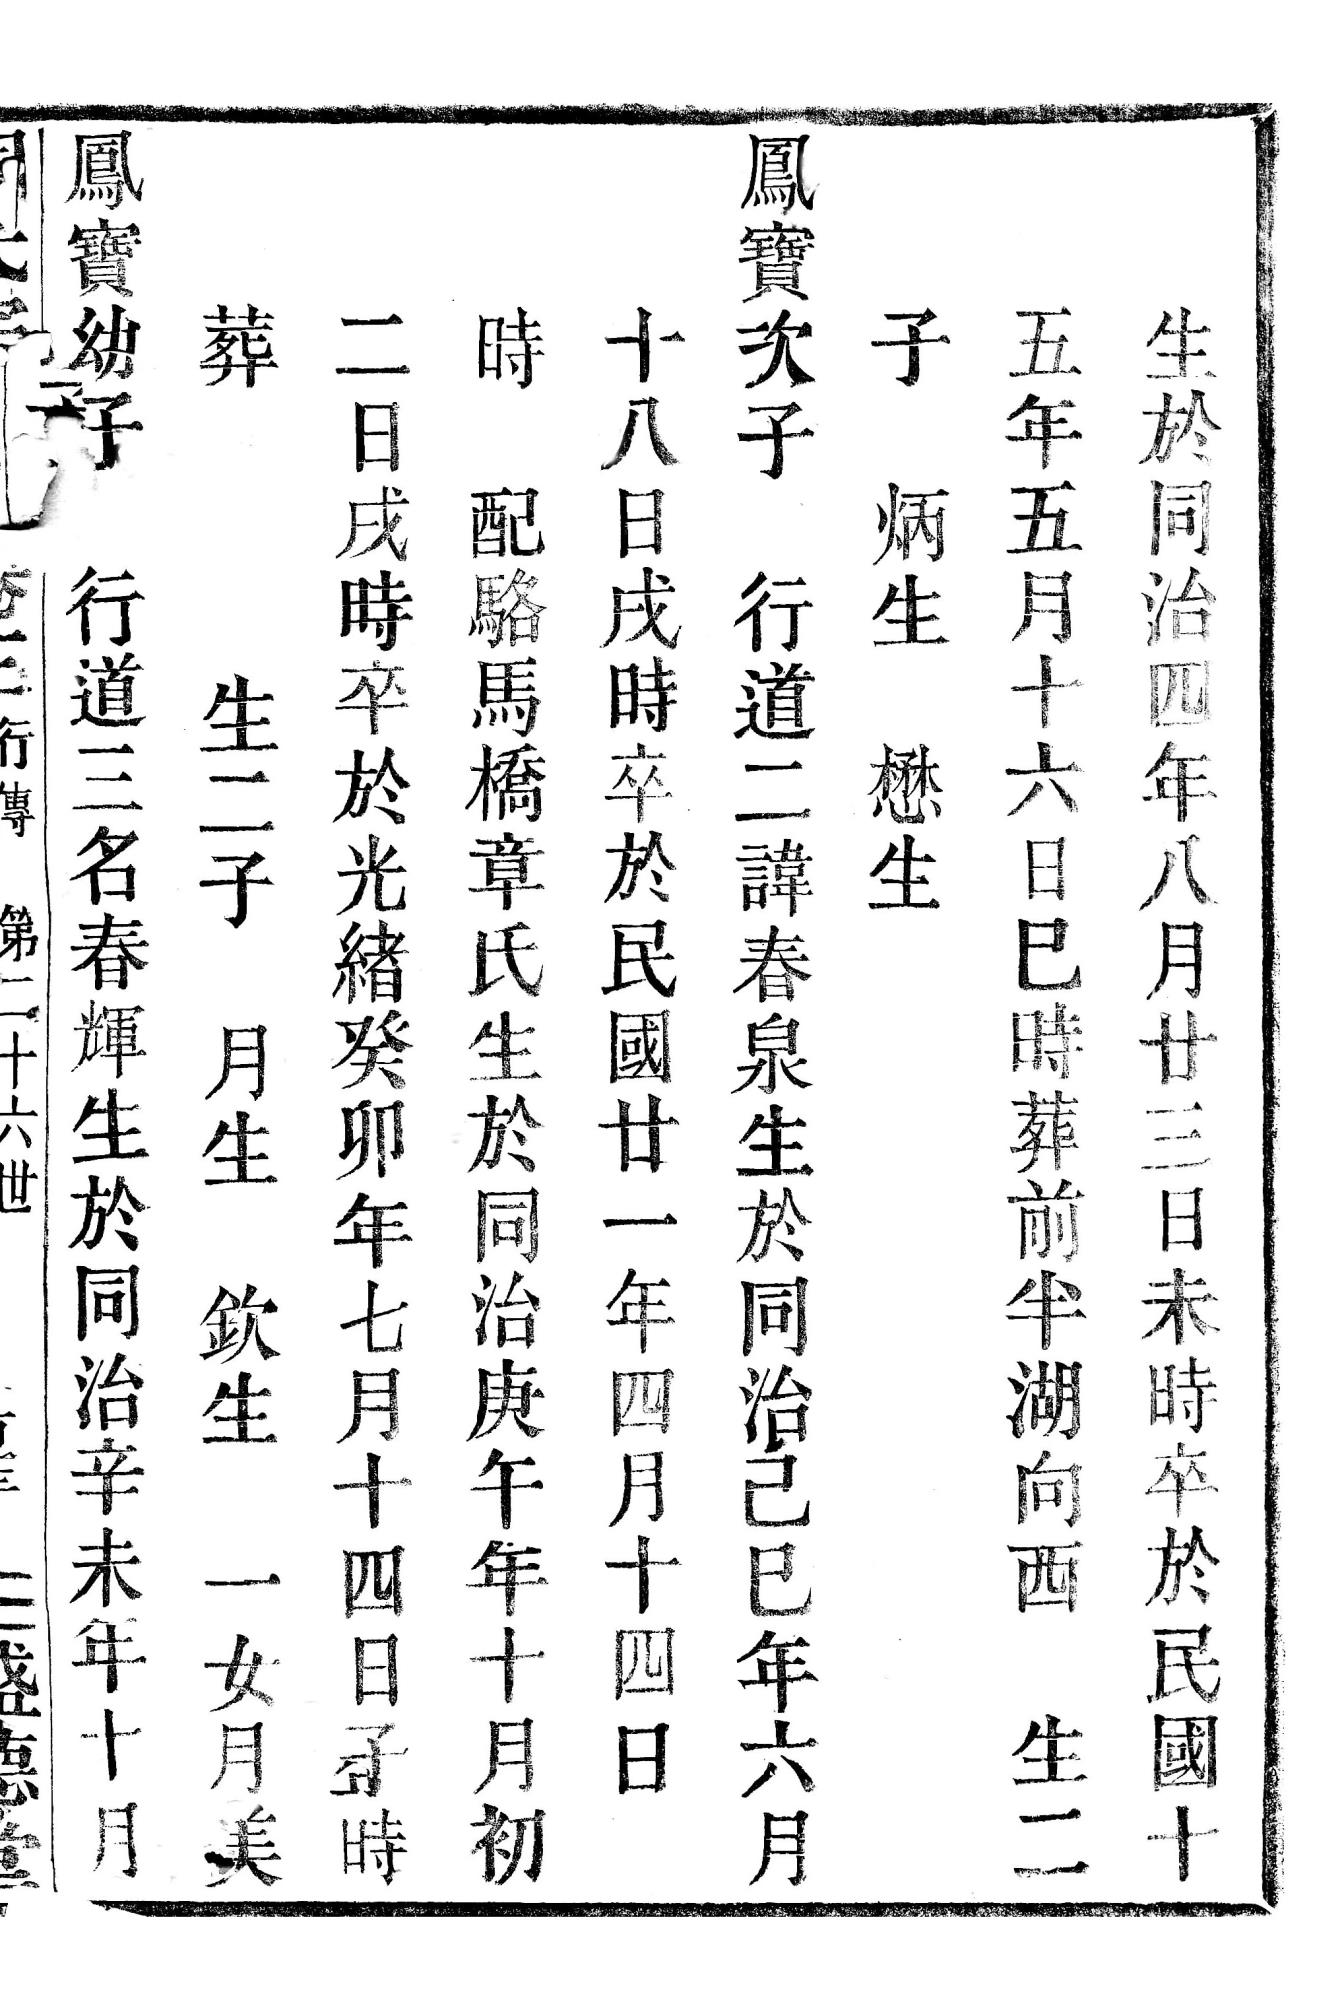 生於同治四年八月廿三日未時卒於民國十
五年五月十六日巳時葬前半湖向西　生二
子　炳生　懋生
鳳寶次子　行道二諱春泉生於同治己巳年六月
十八日戌時卒於民國廿一年四月十四日
時　配駱馬橋章氏生於同治庚午年十月初
二日戌時卒於光緒癸卯年七月十四日子時
葬　　　生二子　月生　欽生　一女月美
鳳寶幼子　行道三名春輝生於同治辛未年十月
行傳　第二十六世　盛德堂